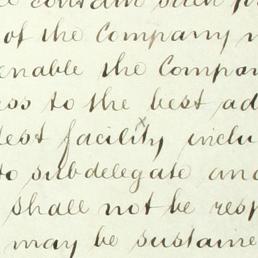 contain such
of the Company
enable the Compan
ess to the best ad
est facility inclu
to subdelegate and
shall not be resp
may be sustaine